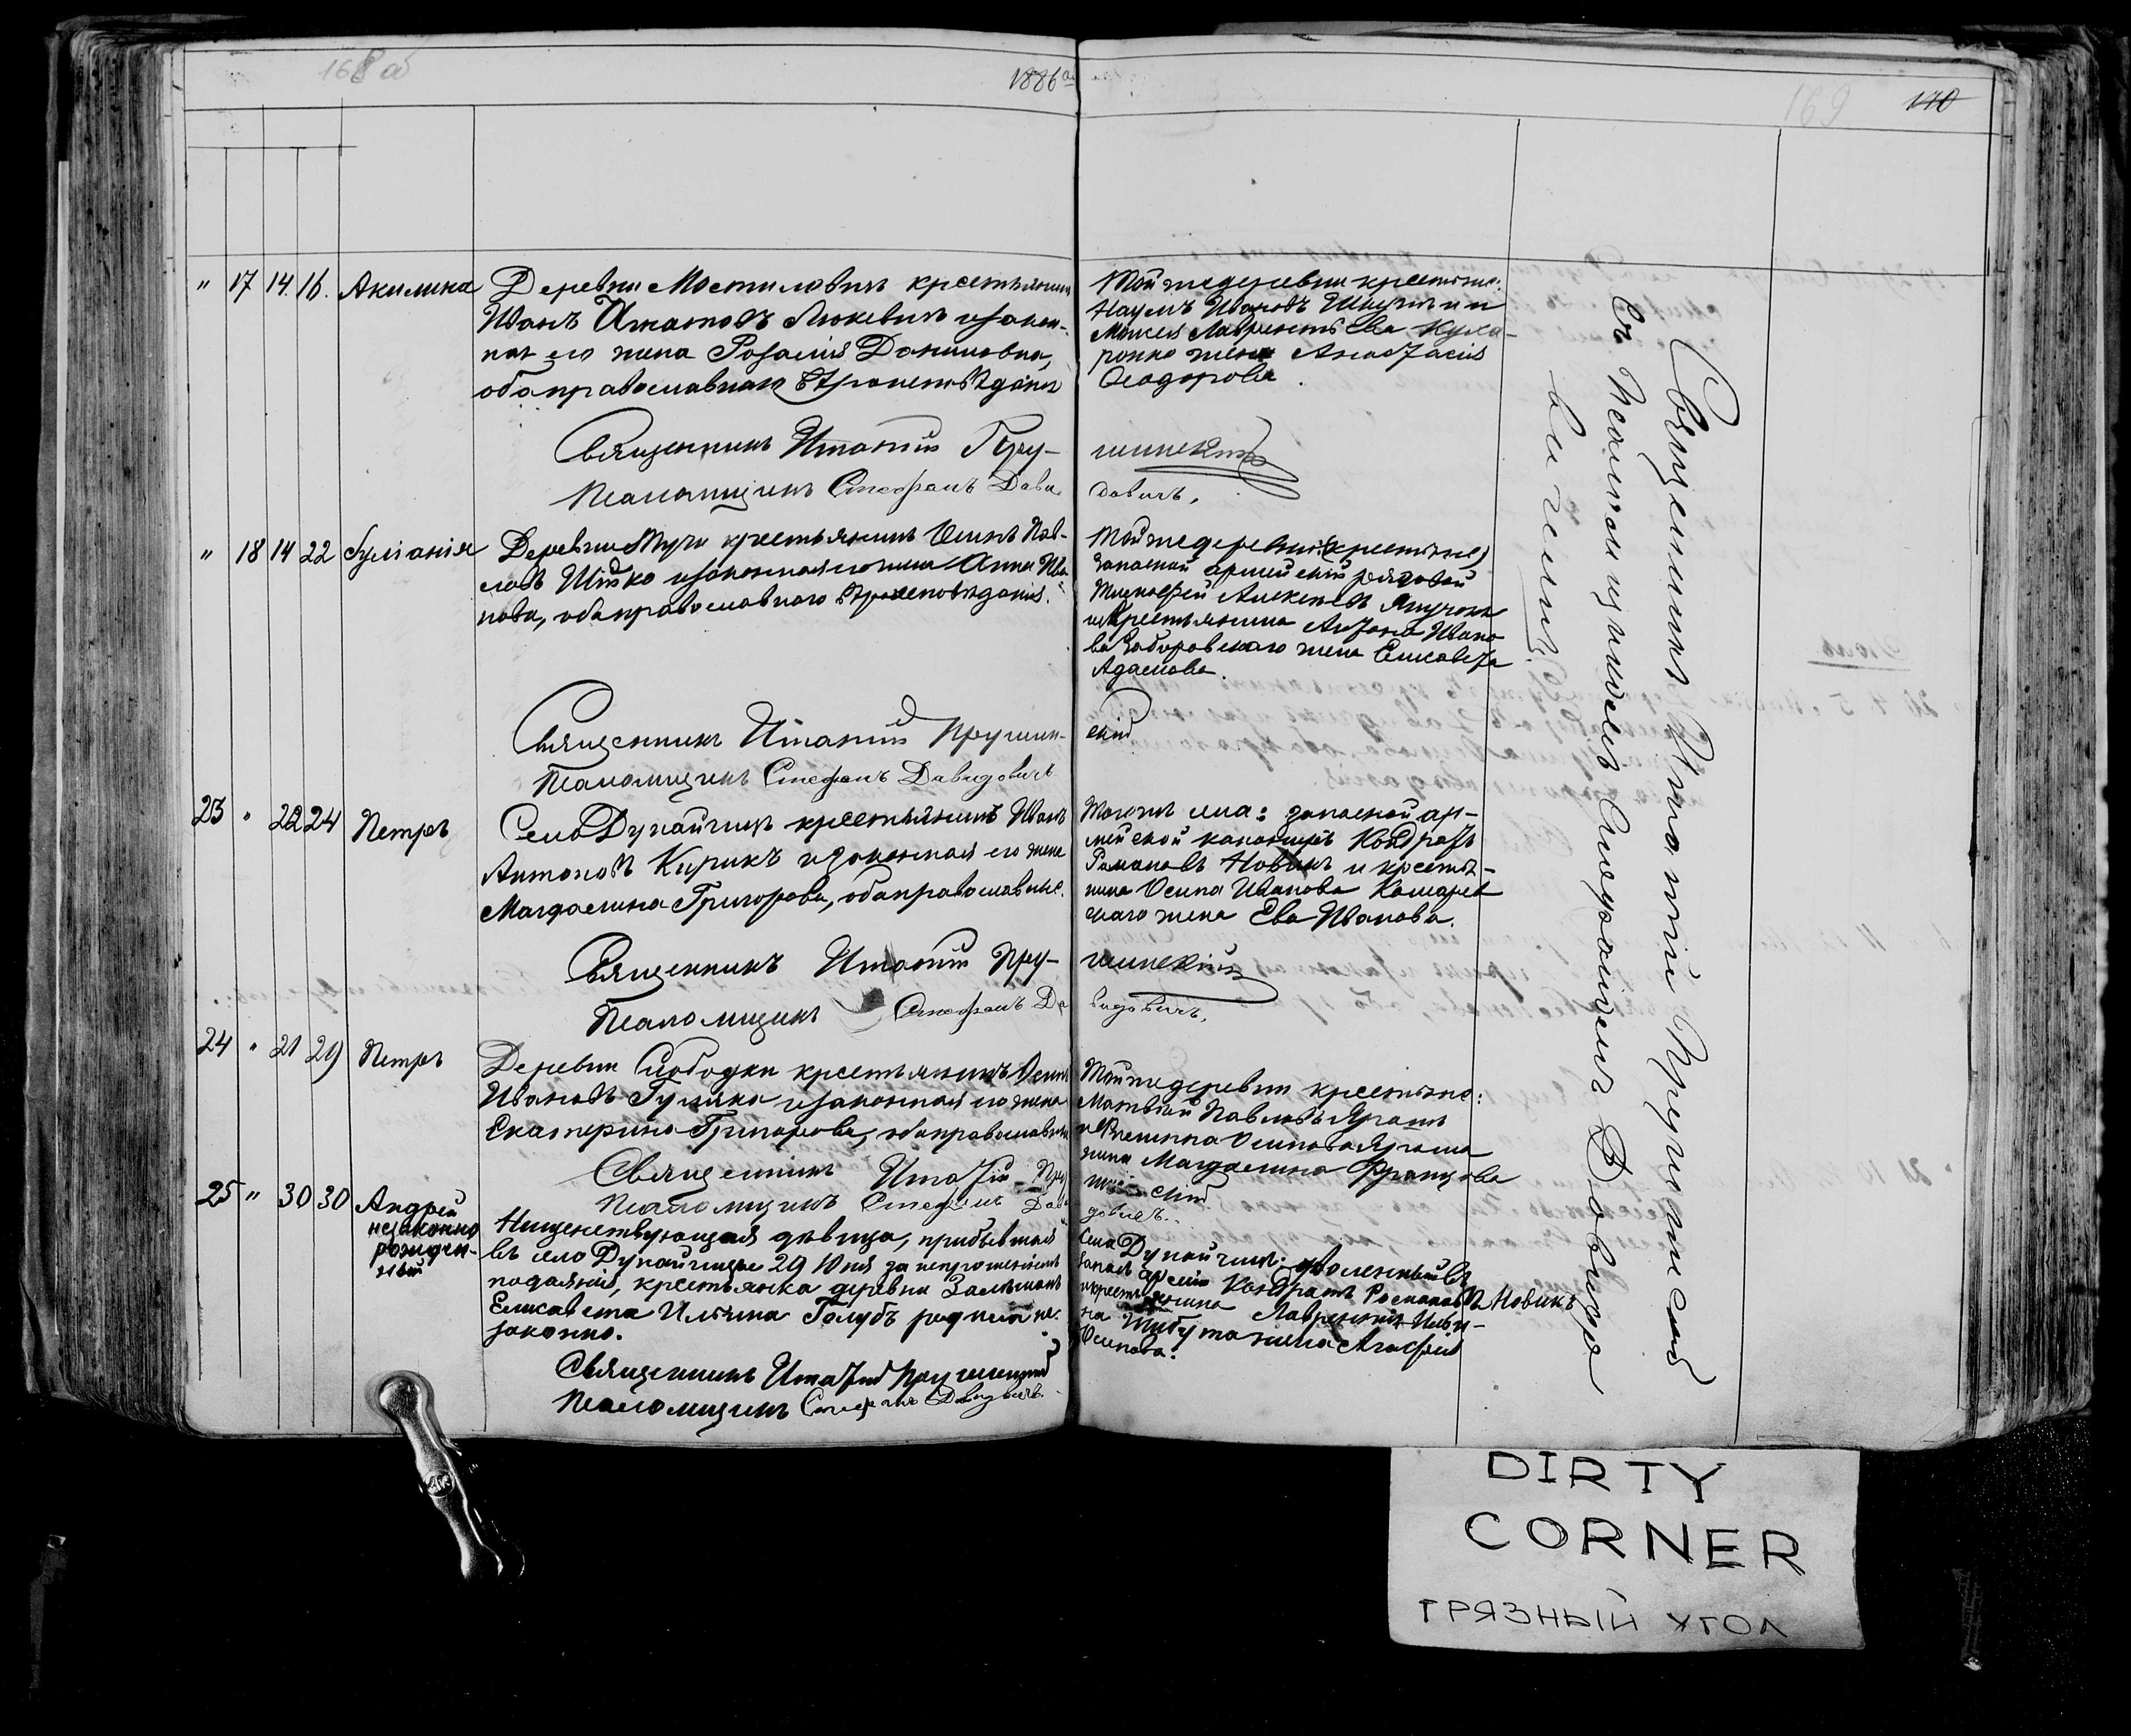 168 об
1886 а
169 170
" 17 14. 16. Акилина
Деревни Мостиловичъ крестьянинъ
Иванъ Игнатовъ Люкевичъ и закон-
ная его жена Розалія Даниловна,
оба православнаго вѣроисповѣданія
Тойже деревни крестьяне:
Наумъ Ивановъ и
Моисея Лаврентьева Куха-
ронко жена Анастасія
Ѳеодорова.
Священникъ Игнатій Пру-
шинскій
Псаломщикъ Стефанъ Дави
довичъ,
" 18 14 22 Іуліанія
Деревни Тучи крестьянинъ Осипъ Пав-
ловъ Шітко и законная его жена Анна Ива
нова, оба православнаго вѣроисповѣданія.
Тойже деревни: (крестьяне)
запасной армейскій рядовой
Тимофей Алексѣевъ
и крестьянина Антона Ивано
ва Заборовскаго жена Елисавета
Адамова.
Священникъ Игнатій Прушин-
скій
Псаломщикъ Стефанъ Давидовичъ
23 " 22 24 Петръ
Села Дунайчицъ крестьянинъ Иванъ
Антоновъ Кирикъ и законная его жена
Магдалина Григорова, оба православные.
Тогоже села: запасной ар-
мейской канониръ Кондратъ
Романовъ Новикъ и крестья-
нина Осипа Иванова Комаров
скаго жена Ева Иванова.
Священникъ Игнатій Пру-
шинскій
Псаломщикъ Стефанъ Да
видовичъ,
24 " 21 29 Петръ
Деревни Слободки крестьянинъ Осипъ
Ивановъ Гуляка и законная его жена
Екатерина Григорова, оба православные
Тойже деревни крестьяне:
Матвѣй Павловъ Ярошъ
и Осипова Яроша
жена Магдалина Францова
Священникъ Игнатій Пру
шинскій
Псаломщикъ Стефанъ Дави
довичъ.
25 " 30 30 Андрей
незаконно
рожден-
ный
Нищенствующая дѣвица, прибывшая
въ село Дунайчицы 29 Юня за испрошеніемъ
подаянія, крестьянка деревни
Елисавета Ильина Голубъ родила не-
законно.
Села Дунайчицъ: уволенный въ
запасъ арміи Кондратъ Романовъ Новикъ
и крестьянина Лаврентія Ильи-
на жена Агафія
Осипова.
Священникъ Игнатій Прушинскій
Псаломщикъ Стефанъ Давидовичъ.
Священникъ Игнатій Прушинскій
Псаломщикъ Стефанъ Давидо
вичъ
DIRTY
CORNER
ГРЯЗНЫЙ УГОЛ